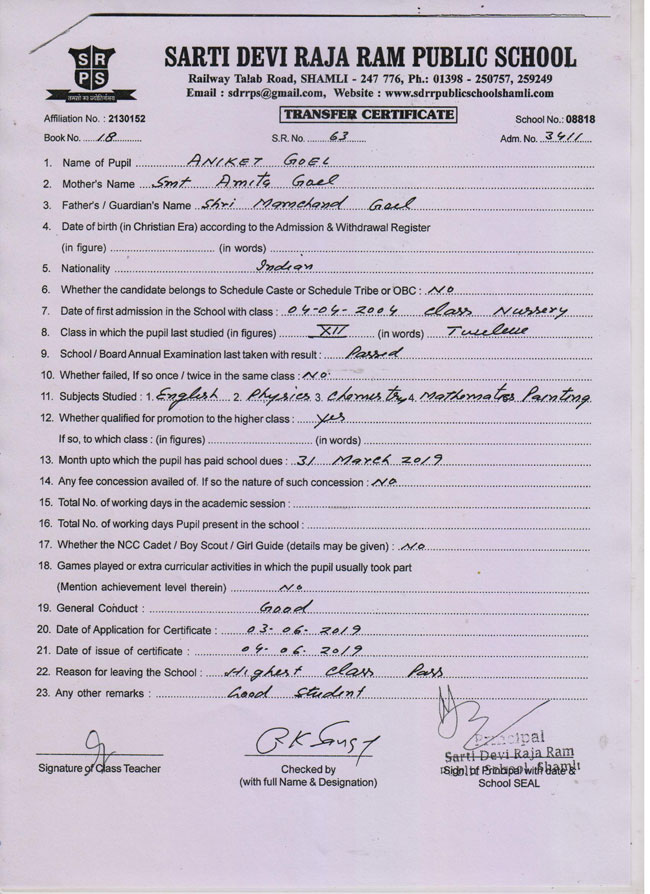 SARTI DEVI RAJA RAM PUBLIC SCHOOL
SR
PS
तमसो मा ज्योतिर्गमय
Railway Talab Road, SHAMLI - 247 776, Ph.: 01398 - 250757, 259249
Email : sdrrps@gmail.com, Website : www.sdrrpublicschoolshamli.com
Affiliation No. : 2130152 TRANSFER CERTIFICATE School No.: 08818
Book No. 18 S.R. No. 63 Adm. No. 3411
1. Name of Pupil ANIKET GOEL
2. Mother's Name Smt Amita Goel
3. Father's / Guardian's Name Shri Mamchand Goel
4. Date of birth (in Christian Era) according to the Admission & Withdrawal Register
(in figure) (in words)
5. Nationality Indian
6. Whether the candidate belongs to Schedule Caste or Schedule Tribe or OBC : No
7. Date of first admission in the School with class : 04-04-2004 class Nussery
8. Class in which the pupil last studied (in figures) XII (in words) Tweleve
9. School / Board Annual Examination last taken with result : Passed
10. Whether failed, If so once / twice in the same class : No
11. Subjects Studied : 1. English 2. Physics 3. Chemistry 4. Mathematics Painting
12. Whether qualified for promotion to the higher class : yes
If so, to which class : (in figures) (in words)
13. Month upto which the pupil has paid school dues : 31 March 2019
14. Any fee concession availed of. If so the nature of such concession : No
15. Total No. of working days in the academic session :
16. Total No. of working days Pupil present in the school :
17. Whether the NCC Cadet / Boy Scout / Girl Guide (details may be given) : No
18. Games played or extra curricular activities in which the pupil usually took part
(Mention achievement level therein) No
19. General Conduct : Good
20. Date of Application for Certificate : 03-06-2019
21. Date of issue of certificate : 04-06-2019
22. Reason for leaving the School : Highest Class Pass
23. Any other remarks : Good Student
Principal
Sarti Devi Raja Ram
Signature of Class Teacher Checked by Sign. of Principal with date &
(with full Name & Designation) School SEAL
Public School, Shamli